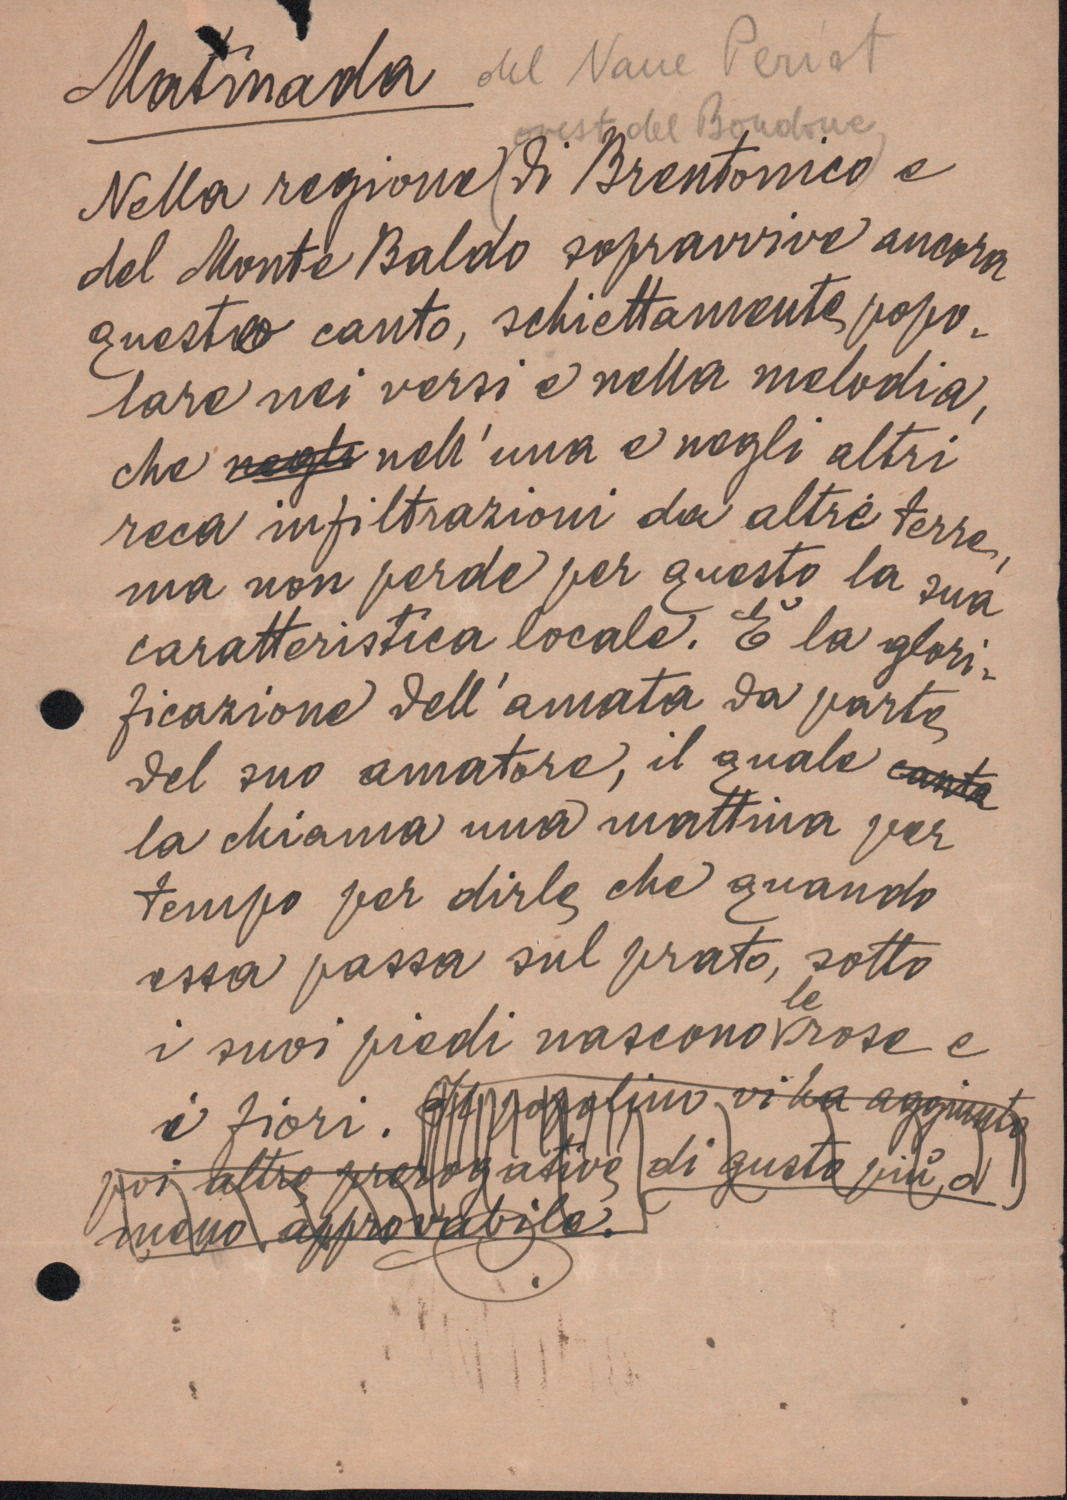 Matinada del Nane Periot
ovest del Bondone
Nella regione (di Brentonico) e
del Monte Baldo sopravvive ancora
questo canto, schiettamente popo-
lare nei versi e nella melodia,
che negli nell'una e negli altri
reca infiltrazioni da altre terre,
ma non perde per questo la sua
caratteristica locale. È la glori-
ficazione dell'amata da parte
del suo amatore, il quale canta
la chiama una mattina per
tempo per dirle che quando
essa passa sul prato, sotto
i suoi piedi nascono le rose e
i fiori. Il popolino vi ha aggiunto
poi altre prerogative di gusto più o
meno approvabile.